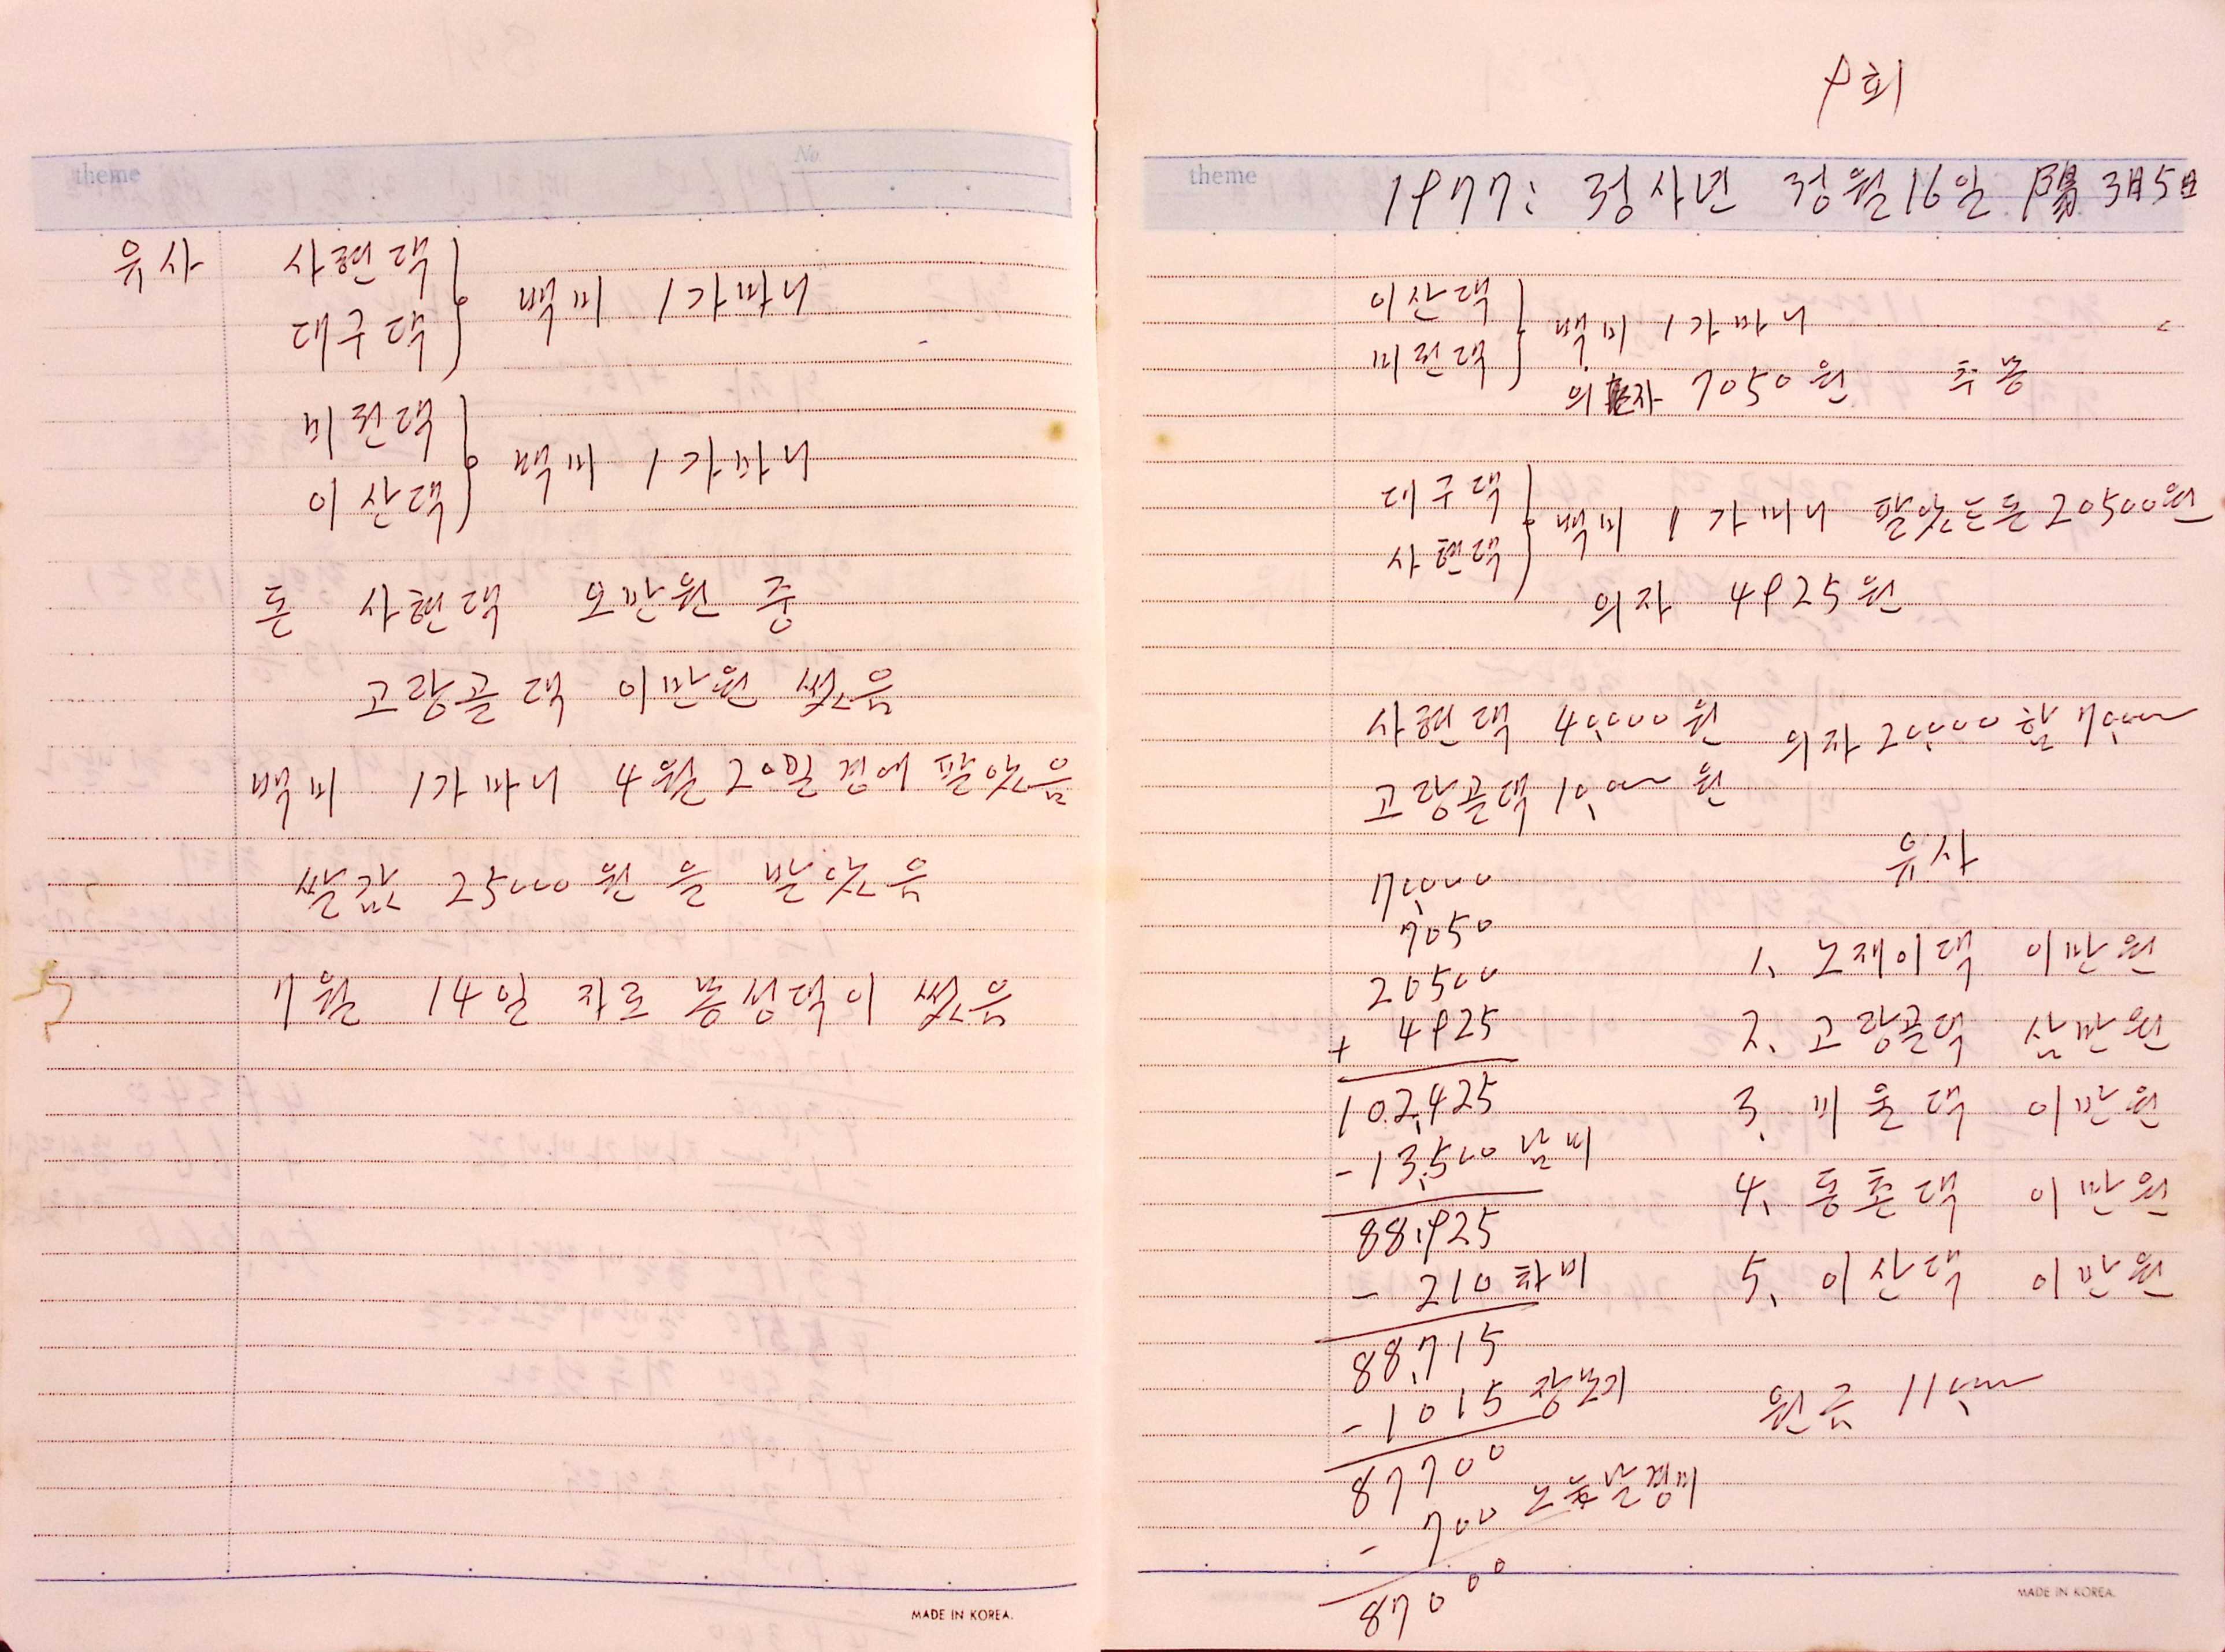 theme
No
유사 사현댁
대구댁 백미 1가마니
미련댁
이산댁 백미 1가마니
돈 사현댁 오만원 중
고랑골댁 이만원 썼음
백미 1가마니 4월 20일경에 팔앗음
쌀값 25000원을 받앗음
7월 14일 자로 동성댁이 썼음
MADE IN KOREA.
9회
theme 1977: 정사년 정월16일 陽 3月5日
이산댁
미련댁 백미 1가마니
의자 7050원
대구댁
사현댁 백미 1가마니 팔앗는돈 20500원
의자 4925원
사현댁 40,000원 의자 20,000 합 70,000
고랑골댁 10,000원
유사
70,000
7050
20500
+ 4925
102,425
-13,500
88,925
- 210
88,715
- 1015
87700
- 700
87000
1. 노재이댁 이만원
2. 고랑골댁 삼만원
3. 미울댁 이만원
4. 동촌댁 이만원
5. 이산댁 이만원
원금 11,000
MADE IN KOREA.